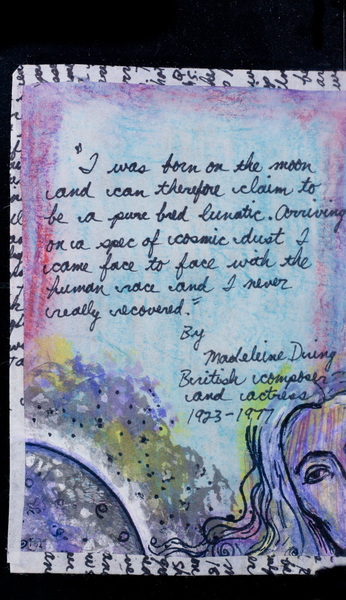 "I was born on the moon
and can therefore claim to
be a pure bred lunatic. Arriving
on a spec of cosmic dust I
came face to face with the
human race and I never
really recovered."
By
Madeleine Dring
British composer
and actress
1923-1977